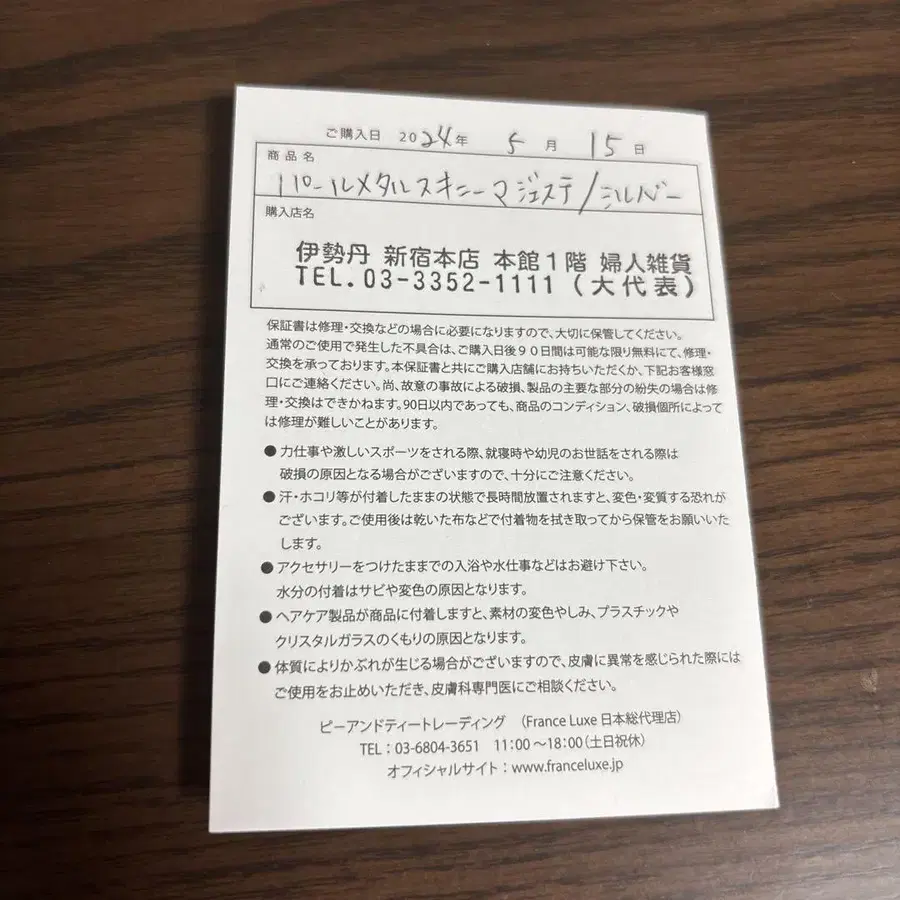 ご購入日 2024年 5月 15日
商品名
パールメタルスキニーマジェステ/シルバー
購入店名
伊勢丹 新宿本店 本館1階 婦人雑貨
TEL.03-3352-1111(大代表)
保証書は修理・交換などの場合に必要になりますので、大切に保管してください。
通常のご使用で発生した不具合は、ご購入日後90日間は可能な限り無料にて、修理・
交換を承っております。本保証書と共にご購入店舗にお持ちいただくか、下記お客様窓
口にご連絡ください。尚、故意の事故による破損、製品の主要な部分の紛失の場合は修
理・交換はできかねます。90日以内であっても、商品のコンディション、破損個所によって
は修理が難しいことがあります。
● 力仕事や激しいスポーツをされる際、就寝時や幼児のお世話をされる際は
破損の原因となる場合がございますので、十分にご注意ください。
● 汗・ホコリ等が付着したままの状態で長時間放置されますと、変色・変質する恐れが
ございます。ご使用後は乾いた布などで付着物を拭き取ってから保管をお願いいた
します。
● アクセサリーをつけたままでの入浴や水仕事などはお避け下さい。
水分の付着はサビや変色の原因となります。
● ヘアケア製品が商品に付着しますと、素材の変色やしみ、プラスチックや
クリスタルガラスのくもりの原因となります。
● 体質によりかぶれが生じる場合がございますので、皮膚に異常を感じられた際には
ご使用をお止めいただき、皮膚科専門医にご相談ください。
ピーアンドティートレーディング (France Luxe 日本総代理店)
TEL:03-6804-3651 11:00〜18:00(土日祝休)
オフィシャルサイト:www.franceluxe.jp